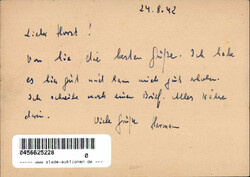 24.8.42
Lieber Horst!
Von hier die besten Grüße. Ich habe
es hier gut und kann mich gut erholen.
Ich schreibe noch einen Brief. Alles Nähere
drin.
Viele Grüße Hermann
0456625228
0
www.slade-auktionen.de